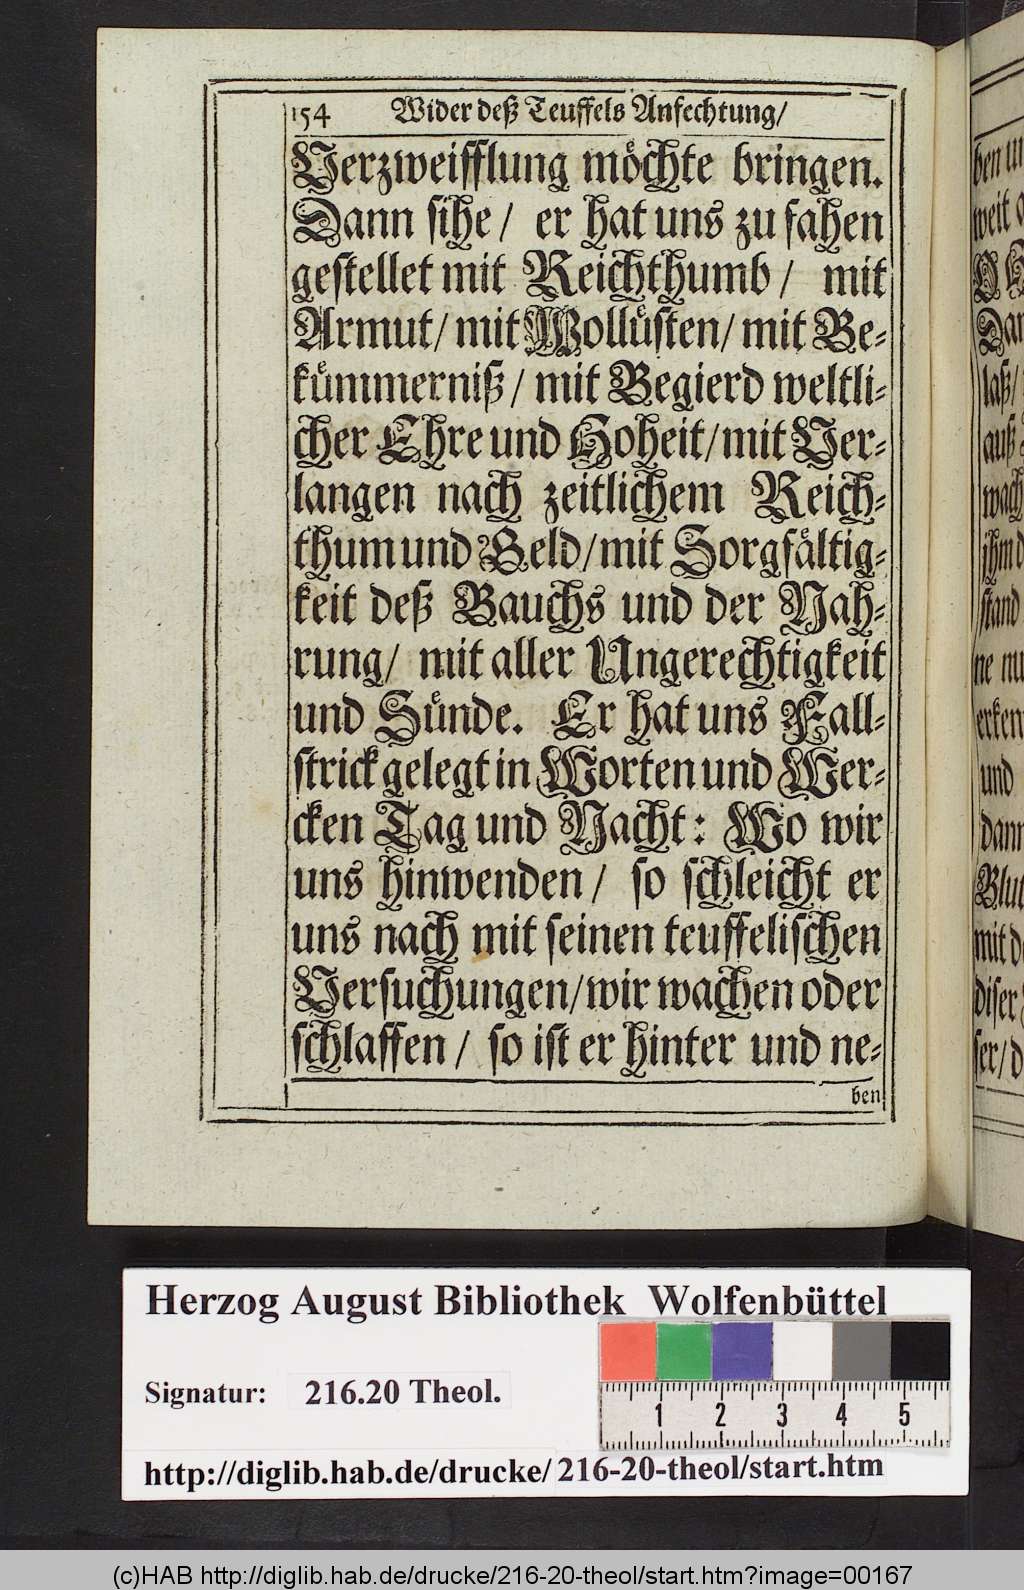 154 Wider deß Teuffels Anfechtung/
Verzweifflung möchte bringen.
Dann sihe/ er hat uns zu fahen
gestellet mit Reichthumb/ mit
Armut/ mit Wollüsten/ mit Be-
kümmerniß/ mit Begierd weltli-
cher Ehre und Hoheit/ mit Ver-
langen nach zeitlichem Reich-
thum und Geld/ mit Sorgfältig-
keit deß Bauchs und der Nah-
rung/ mit aller Ungerechtigkeit
und Sünde. Er hat uns Fall-
strick gelegt in Worten und Wer-
cken Tag und Nacht: Wo wir
uns hinwenden/ so schleicht er
uns nach mit seinen teuffelischen
Versuchungen/ wir wachen oder
schlaffen/ so ist er hinter und ne-
ben
weit
laß/
auß
wach
ihm
stand
erken
und
dann
Blut
mit
diser
ser/
Herzog August Bibliothek Wolfenbüttel
Signatur: 216.20 Theol.
1 2 3 4 5
http://diglib.hab.de/drucke/216-20-theol/start.htm
(c)HAB http://diglib.hab.de/drucke/216-20-theol/start.htm?image=00167